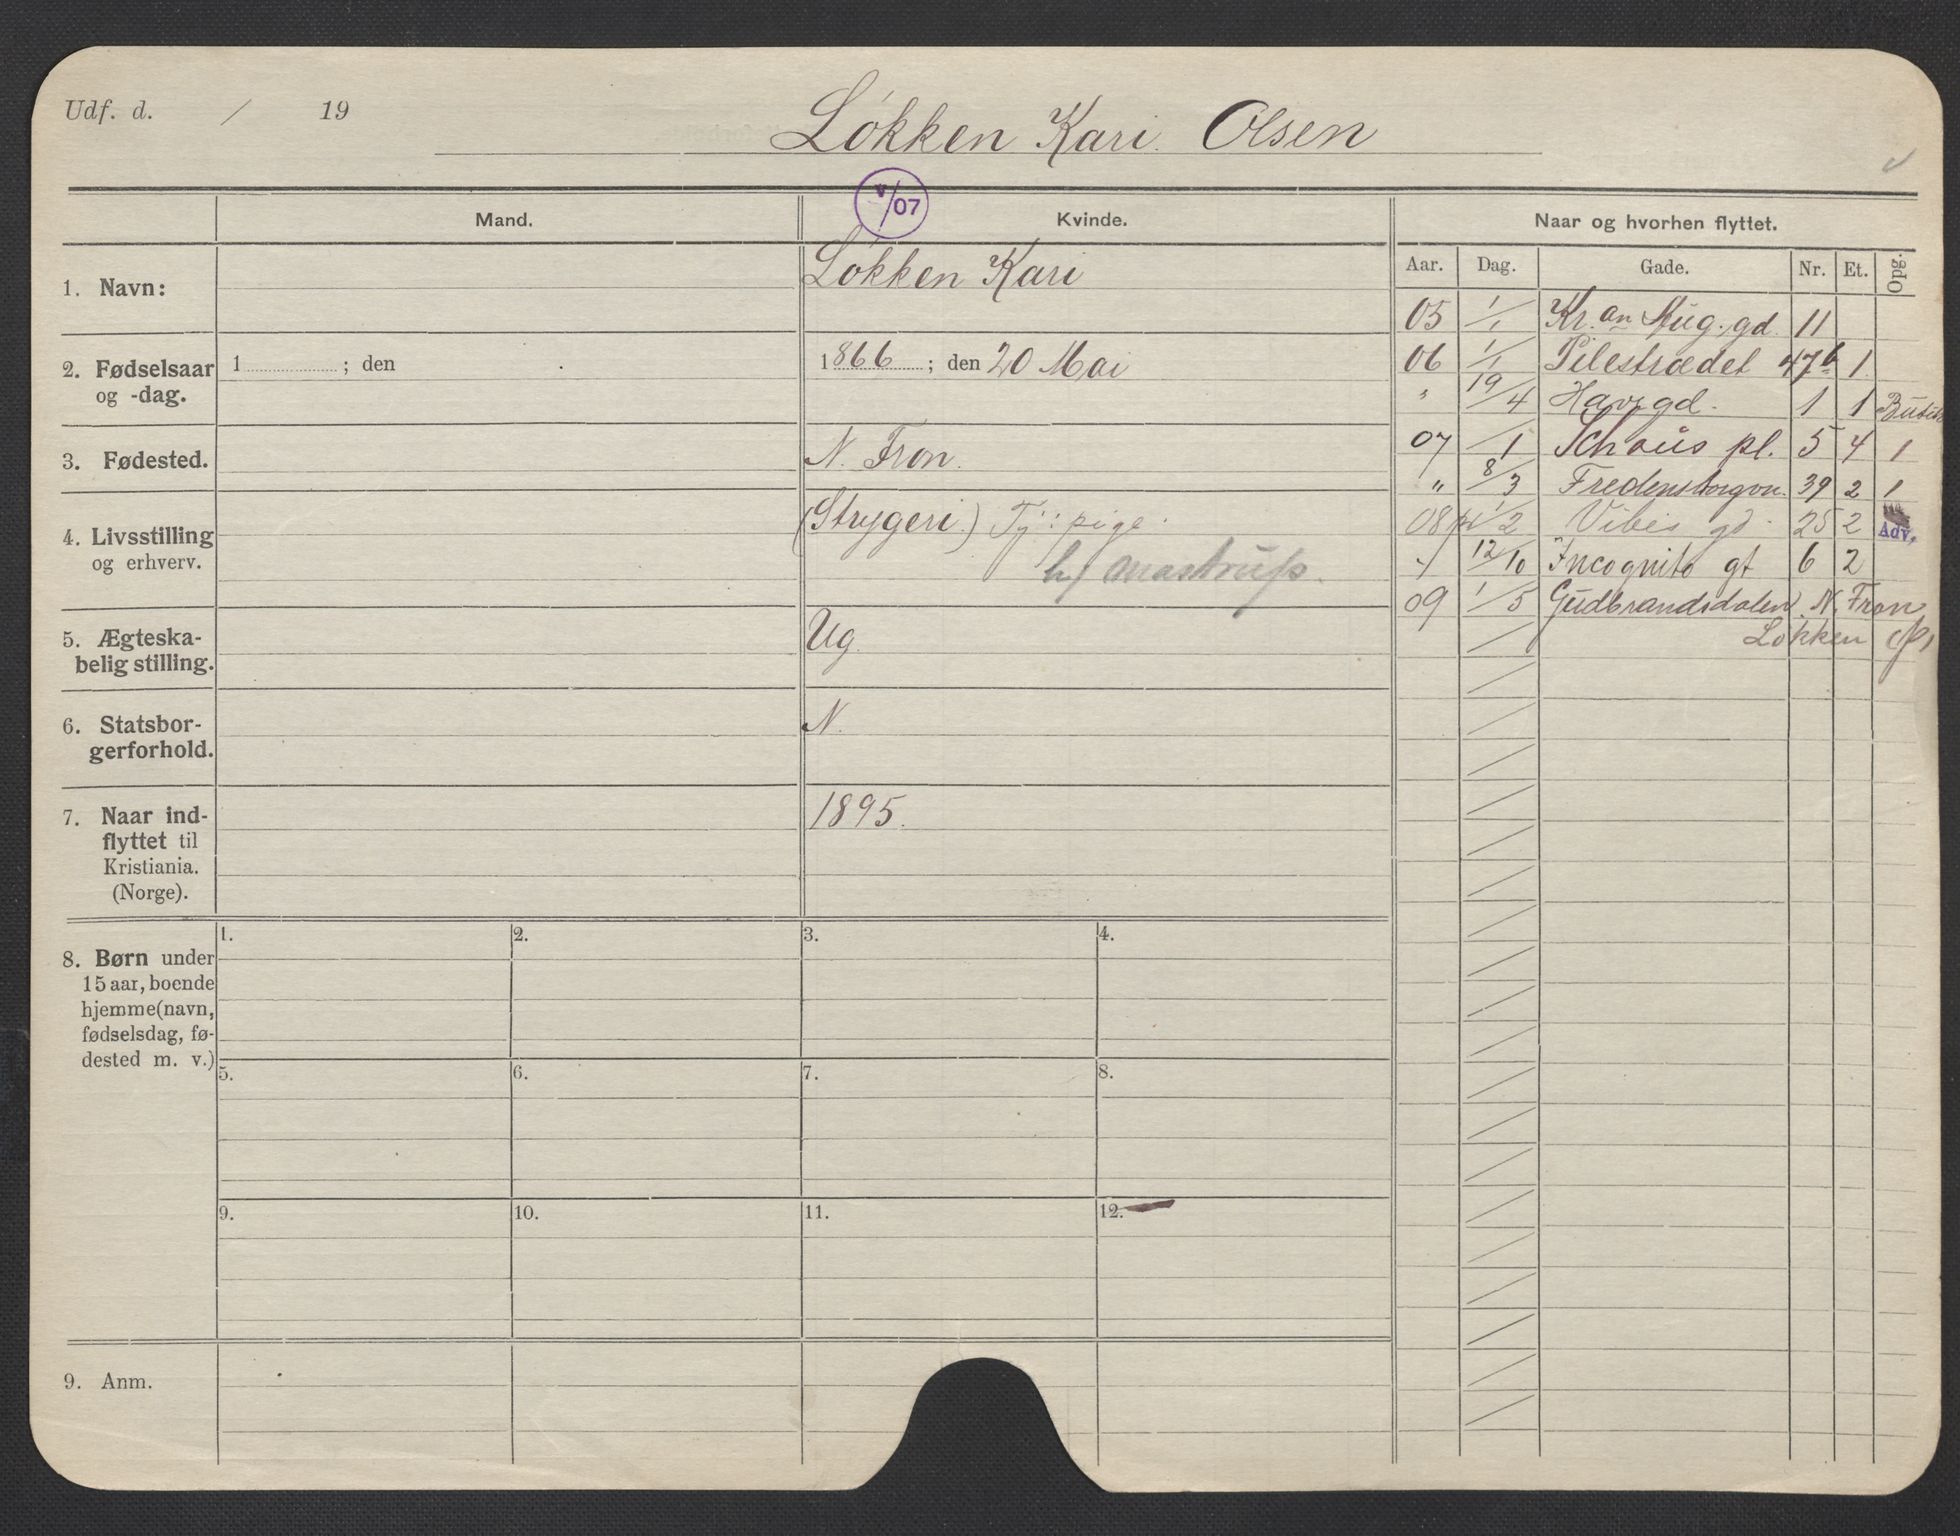 Udf. d. / 19
Løkken Kari. Olsen
Mand.
V/07
Kvinde.
Naar og hvorhen flyttet.
Aar. Dag. Gade. Nr. Et. Opg.
1. Navn:
Løkken Kari
2. Fødselsaar
og -dag.
1 ; den
1866 ; den 20 Mai
3. Fødested.
N. Fron.
4. Livsstilling
og erhverv.
(Strygeri.) Tj: pige.
h/
5. Ægteska-
belig stilling.
Ug.
6. Statsbor-
gerforhold.
N.
7. Naar ind-
flyttet til
Kristiania.
(Norge).
1895.
05 1/1 Kr. an Aug. gd. 11
06 1/1 Pilestrædet 47b 1
" 19/4 Havegd. 1 1
07 /1 Schous pl. 5 4 1
" 8/3 Fredensborgvn. 39 2 1
08 1/2 Vibes gd. 25 2 Adv.
12/10 Incognito gt 6 2
09 1/5 Gudbrandsdalen N. Fron
Løkken
8. Børn under
15 aar, boende
hjemme (navn,
fødselsdag, fø-
dested m. v.)
1. 2. 3. 4.
5. 6. 7. 8.
9. 10. 11. 12.
9. Anm.